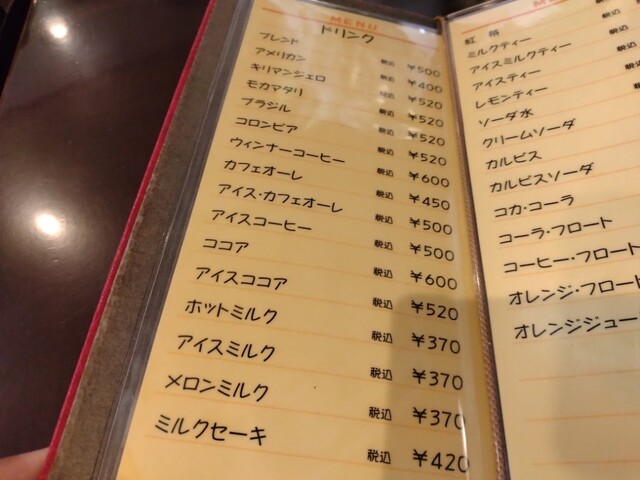 MENU
ドリンク
ブレンド 税込 ¥500
アメリカン 税込 ¥400
キリマンジェロ 税込 ¥520
モカマタリ 税込 ¥520
ブラジル 税込 ¥520
コロンビア 税込 ¥520
ウィンナーコーヒー 税込 ¥600
カフェオーレ 税込 ¥450
アイス・カフェオーレ 税込 ¥500
アイスコーヒー 税込 ¥500
ココア 税込 ¥600
アイスココア 税込 ¥520
ホットミルク 税込 ¥370
アイスミルク 税込 ¥370
メロンミルク 税込 ¥370
ミルクセーキ 税込 ¥420
紅 茶
ミルクティー
アイスミルクティー
アイスティー
レモンティー
ソーダ水
クリームソーダ
カルピス
カルピスソーダ
コカ・コーラ
コーラ・フロート
コーヒー・フロート
オレンジ・フロー
オレンジジュー